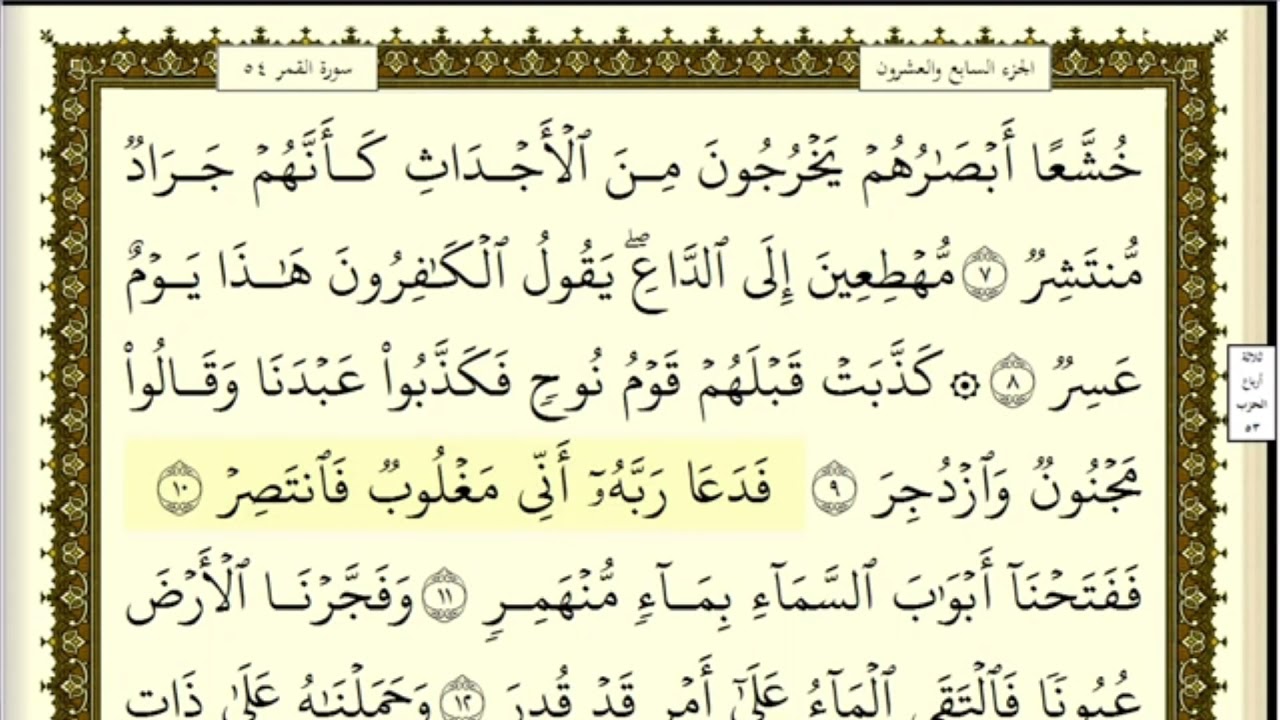 الجزء السابع والعشرون
سورة القمر ٥٤
خُشَّعًا أَبْصَٰرُهُمْ يَخْرُجُونَ مِنَ ٱلْأَجْدَاثِ كَأَنَّهُمْ جَرَادٌ
مُّنتَشِرٌ ٧ مُّهْطِعِينَ إِلَى ٱلدَّاعِ ۖ يَقُولُ ٱلْكَٰفِرُونَ هَٰذَا يَوْمٌ
عَسِرٌ ٨ ۞ كَذَّبَتْ قَبْلَهُمْ قَوْمُ نُوحٍ فَكَذَّبُوا۟ عَبْدَنَا وَقَالُوا۟
مَجْنُونٌ وَٱزْدُجِرَ ٩ فَدَعَا رَبَّهُۥٓ أَنِّى مَغْلُوبٌ فَٱنتَصِرْ ١٠
فَفَتَحْنَآ أَبْوَٰبَ ٱلسَّمَآءِ بِمَآءٍ مُّنْهَمِرٍ ١١ وَفَجَّرْنَا ٱلْأَرْضَ
عُيُونًا فَٱلْتَقَى ٱلْمَآءُ عَلَىٰٓ أَمْرٍ قَدْ قُدِرَ ١٢ وَحَمَلْنَٰهُ عَلَىٰ ذَاتِ
ثلاثة
أرباع
الحزب
٥٣